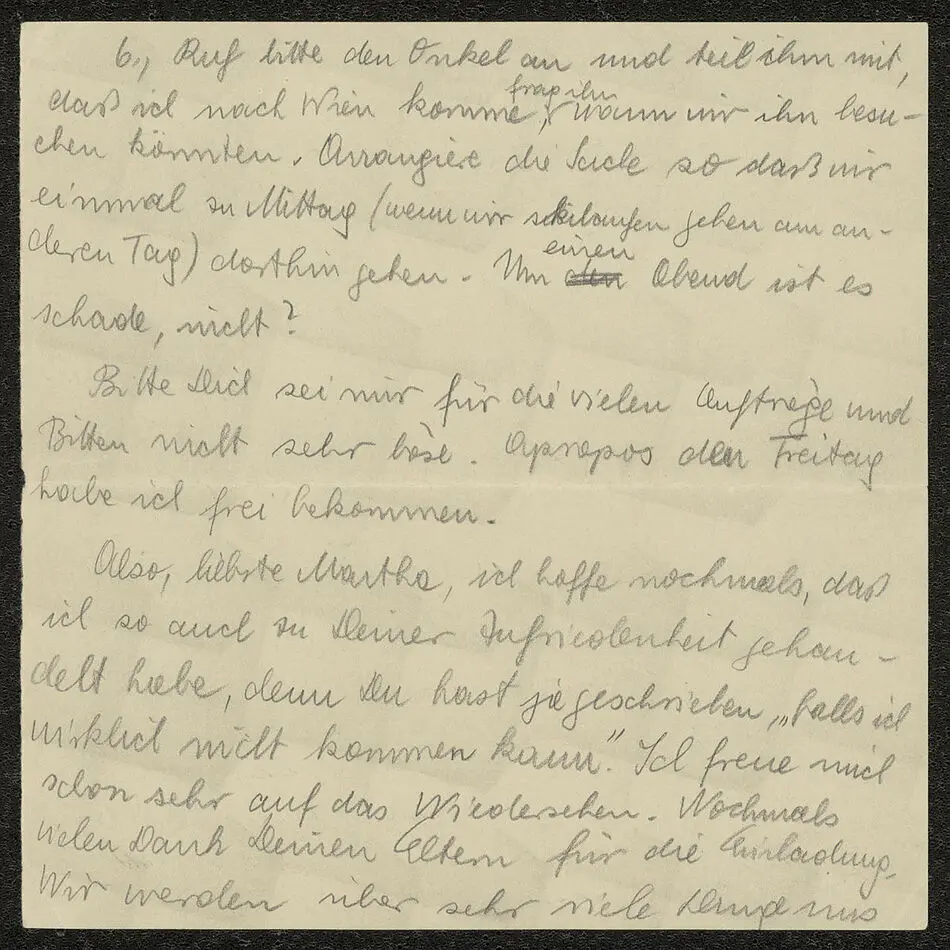 6., Ruf bitte den Onkel an und teil ihm mit,
daß ich nach Wien komme, frag ihn wann wir ihn besu-
chen könnten. Arrangiere die Sache so daß wir
einmal zu Mittag (wenn wir skilaufen gehen am an-
deren Tag) dorthin gehen. Um einen den Abend ist es
schade, nicht?
Bitte Dich sei mir für die vielen Aufträge und
Bitten nicht sehr böse. Apropos den Freitag
habe ich frei bekommen.
Also, liebste Martha, ich hoffe nochmals, daß
ich so auch zu Deiner Zufriedenheit gehan-
delt habe, denn Du hast ja geschrieben „falls ich
wirklich nicht kommen kann". Ich freue mich
schon sehr auf das Wiedersehen. Nochmals
vielen Dank Deinen Eltern für die Einladung.
Wir werden über sehr viele Dinge uns